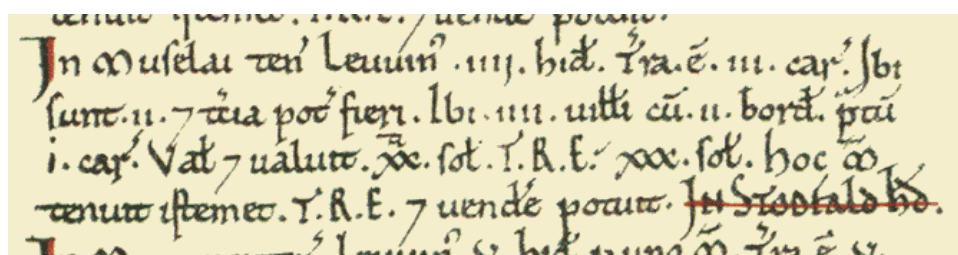 tenuit istemet. T.R.E. ⁊ uende potuit.
In Muselai ten᷑ Leuuin᷑ .iiij. hid̄. T᷑ra.ē. iii. car᷑. Ibi
sunt.ii. ⁊ t᷑cia pot᷑ fieri. Ibi.iiii. uilł̄i cū.ii. bord̄. p̄tū
i. car᷑. Val̄ ⁊ ualuit. xx. sol̄. T.R.E.᷑ xxx. sol̄. Hoc M̄
tenuit istemet. T.R.E. ⁊ uend̄e potuit. In Stodfald hd̄.